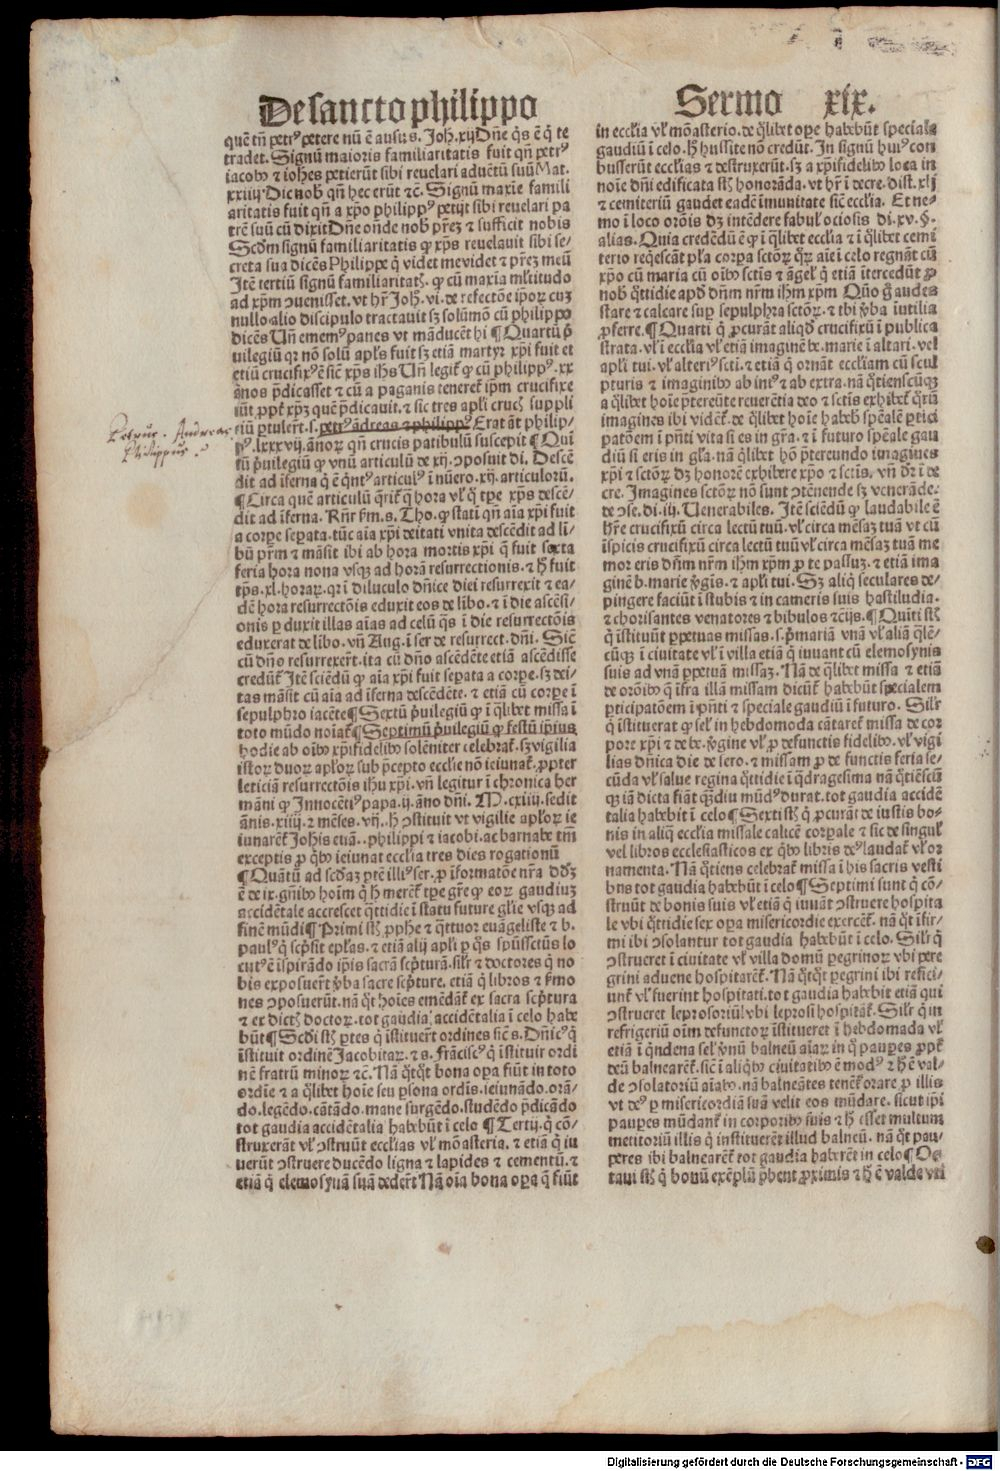 De sancto philippo
quē tn̄ petrꝰ petere nū ē ausus. Joh. xij Dn̄e q̄s ē q̄ te
tradet. Signū maioris familiaritatis fuit qn̄ petrꝰ
iacobꝰ ⁊ iohēs petierūt sibi reuelari aduētū suū Mat.
xxiiij. Dic nob̄ qn̄ hec erūt ⁊c̄. Signū maxīe famili
aritatis fuit qn̄ a xp̄o philippꝰ petijt sibi reuelari pa
trē suū cū dixit Dn̄e ondē nob̄ pr̄eꝫ ⁊ sufficit nobis
Scd̄m signū familiaritatis ꝙ xp̄s reuelauit sibi se⸗
creta sua dicēs Philippe q̄ videt me videt ⁊ pr̄eꝫ meū
Itē tertiū signū familiaritatꝭ. ꝙ cū maxīa ml̄titudo
ad xp̄m ꝯuenisset. vt hr̄ Joh. vi. de refectōe ip̄oꝝ cuꝫ
nullo alio discipulo tractauit sꝫ solūmō cū philippo
dicēs Un̄ ememꝰ panes vt māducēt hi ¶ Quartū p̄
uilegiū qꝛ nō solū apl̄s fuit sꝫ etiā martyr xp̄i fuit et
etiū crucifixꝰ ē sic̄ xp̄s ih̄s Un̄ legit̄ ꝙ cū philippꝰ. xx
ānos p̄dicasset ⁊ cū a paganis teneret̄ ip̄m crucifixe
rūt ꝓpt̄ xp̄ꝫ quē p̄dicauit. ⁊ sic tres apl̄i crucꝭ suppli
ciū ꝑtulert̄. s. petrꝰ ādreas ⁊ philippꝰ Erat āt philip⸗
pꝰ. lxxxvij. ānoꝝ qn̄ crucis patibulū suscepit ¶ Qui
tū p̄uilegiū ꝙ vnū articulū de xij. ꝯposuit di. Descē
dit ad īferna q̄ ē q̄ntꝰ articulꝰ ī nūero. xij. articuloꝝ.
¶ Circa quē articulū q̄rit̄ q̄ hora vl̓ q̄ tꝑe xp̄s descē⸗
dit ad īferna. Rn̄r fm̄. s. Tho. ꝙ statī qn̄ aīa xp̄i fuit
a corpe seꝑata. tūc aīa xp̄i deitati vnita descēdit ad lī⸗
bū pr̄m ⁊ māsit ibi ab hora mortis xp̄i q̄ fuit sexta
feria hora nona vsqꝫ ad horā resurrectionis. ⁊ h̄ fuit
tp̄s. xl. horaꝝ. qꝛ ī diluculo dn̄ice diei resurrexit ⁊ ea⸗
dē hora resurrectōis eduxit eos de līбo. ⁊ ī die ascēsi⸗
onis ꝑ duxit illas aīas ad celū q̄s ī die resurrectōis
eduxerat de lībo. vn̄ Aug. ī ser. de resurrect. dn̄i. Sic̄
cū dn̄o resurrexer̄t. ita cū dn̄o ascēdēte etiā ascēdisse
credūt̄ Itē sciēdū ꝙ aīa xp̄i fuit seꝑata a corꝑe. sꝫ dei⸗
tas māsit cū aīa ad īferna descēdēte. ⁊ etiā cū corꝑe ī
sepulchro iacēte ¶ Sextū p̄uilegiū ꝙ ī q̄libet missa ī
toto mūdo noīat̄ ¶ Septimū p̄uilegiū ꝙ festū ip̄ius
hodie ab oībꝰ xp̄ifidelibꝰ solēniter celebrat̄. sꝫ vigilia
istoꝝ duoꝝ apl̄oꝝ sub p̄cepto ecclīe nō ieiunat̄. ꝓpter
leticiā resurrectōis ihu xp̄i. vn̄ legitur ī chronica her
māni ꝙ Innocētiꝰ papa. ij. āno dn̄i. M. cxiiij. sedit
ānis. xiiij. ⁊ mēses. vij. h̄ ꝯstituit vt vigilie apl̄oꝝ ie
iunarēt̄ Joh̄is euā. . philippi ⁊ iacobi. ac barnabe tm̄
exceptis ꝓ q̄bꝰ ieiunat ecclīa tres dies rogationū
¶ Quātū ad scd̄aꝫ ꝑtē illiꝰ ser. ꝓ īformatōe nr̄a dd̄ꝫ
ē de ix. gn̄ibꝰ hoīm q̄ h̄ meret̄ tꝑe gr̄e ꝙ eoꝝ gaudiuꝫ
accidētale accrescet q̄ttidie ī statu future gl̄ie vsqꝫ ad
finē mūdi ¶ Primi st̄ ꝓphe ⁊ q̄ttuor euāgeliste ⁊ b.
paulꝰ q̄ scp̄sit epl̄as. ⁊ etiā alij apl̄i ꝑ q̄s spūssctūs lo
cutꝰ ē īspirādo ip̄is sacrā scp̄turā. sil̄r ⁊ doctores q̄ no
bis exposuert̄ v̄ba sacre scp̄ture. etiā q̄ libros ⁊ s̄mo
nes ꝯposuerūt. nā q̄t hoīes emēdāt̄ ex sacra scp̄tura
⁊ ex dictꝭ doctoꝝ. tot gaudia accidētalia ī celo habe
būt ¶ Scd̄i st̄ ꝑtes q̄ īstituer̄t ordines sic̄ s. Dn̄icꝰ q̄
īstituit ordinē Jacobitaꝝ. ⁊ s. frāciscꝰ q̄ īstituit ordi
nē fratrū minoꝝ ⁊c̄. Nā q̄tq̄t bona oꝑa fiūt in toto
ordīe ⁊ a q̄libet hoīe seu ꝑsona ordīs. ieiunādo. orā⸗
do. legēdo. cātādo. mane surgēdo. studēdo p̄dicādo
tot gaudia accidētalia habebūt ī celo ¶ Tertij. q̄ cō⸗
struxerāt vl̓ ꝯstruūt ecclīas vl̓ mōasteria. ⁊ etiā q̄ iu
uerūt ꝯstruere ducēdo ligna ⁊ lapides ⁊ cementū. ⁊
etiā q̄ elemosynā suā deder̄t Nā oīa bona oꝑa q̄ fiūt
Petrus. Andreas
Philippus.
Sermo xix.
in ecclīa vl̓ mōasterio. de q̄libet oꝑe habebūt speciale
gaudiū ī celo. h̄ hussite nō credūt. In signū huiꝰ com
busserūt ecclīas ⁊ destruxerūt. sꝫ a xp̄ifidelibꝰ loca in
noīe dn̄i edificata st̄ honorāda. vt hr̄ ī decre. dist. xlij
⁊ cemiteriū gaudet eadē īmunitate sic̄ ecclīa. Et ne⸗
mo ī loco orōis dꝫ intēdere fabul̓ ociosis di. xv. §.
alias. Quia credēdū ē ꝙ ī q̄libet ecclīa ⁊ ī q̄libet cemi
terio req̄escāt pl̄a corpa sctōꝝ q̄ꝝ aīe ī celo regnāt cū
xp̄o cū maria cū oībꝰ sctīs ⁊ āgel̓ q̄ etiā ītercedūt ꝓ
nob̄ q̄ttidie apd̄ dn̄m nr̄m ih̄m xp̄m Quō g̊ audes
stare ⁊ calcare suꝑ sepulchra sctōꝝ. ⁊ ibi v̄ba īutilia
ꝓferre. ¶ Quarti q̄ ꝓcurāt aliqd̄ crucifixū ī publica
strata. vl̓ ī ecclīa vl̓ etiā imaginē be. marie ī altari. vel
apl̄i tui. vl̓ alteriꝰ scti. ⁊ etiā q̄ ornāt ecclīam cū scul
pturis ⁊ imaginibꝰ ab intꝰ ⁊ ab extra. nā q̄tienscūqꝫ
a q̄libet hoīe p̄tereūte reuerētia deo ⁊ sctīs exhibet̄ q̄rū
imagines ibi vidēt̄. de q̄libet hoīe habeb̄ spēalē ꝑtici
patōem ī pn̄ti vita si es in gr̄a. ⁊ ī futuro spēale gau
diū si eris in gl̄a. nā q̄libet hō p̄tereundo imagines
xp̄i ⁊ sctōꝝ dꝫ honorē exhibere xp̄o ⁊ sctīs. vn̄ dr̄ ī de
cre. Imagines sctōꝝ nō sunt ꝯtēnende sꝫ venerāde.
de ꝯse. di. iij. Uenerabiles. Itē sciēdū ꝙ laudabile ē
hr̄e crucifixū circa lectū tuū. vl̓ circa mēsaꝫ tuā vt cū
īspicis crucifixū circa lectū tuū vl̓ circa mēsaꝫ tuā me
mor eris dn̄m nr̄m ih̄m xp̄m ꝓ te passuꝫ. ⁊ etiā ima
ginē b. marie v̄gīs. ⁊ apl̄i tui. Sꝫ aliq̄ seculares de⸗
pingere faciūt ī stubis ⁊ in cameris suis hastiludia.
⁊ chorisantes venatores ⁊ bibulos ⁊ c̄ijs. ¶ Quīti st̄
q̄ īstituūt ꝑpetuas missas. s. p̄mariā vnā vl̓ aliā q̄lē⸗
cūqꝫ ī ciuitate vl̓ ī villa etiā q̄ iuuant cū elemosynis
suis ad vnā ꝑpetuā missaꝫ. Nā de q̄libet missa ⁊ etiā
de orōibꝰ q̄ īfra illā missam dicūt̄ habebūt specialem
ꝑticipatōem ī pn̄ti ⁊ speciale gaudiū ī futuro. Sil̄r
q̄ īstituerāt ꝙ sel̓ in hebdomada cātaret̄ missa de cor
pore xp̄i ⁊ de be. v̄gine vl̓ ꝓ defunctis fidelibꝰ. vl̓ vigi
lias dn̄ica die de sero. ⁊ missam ꝓ defunctis feria se⸗
cūda vl̓ salue regina q̄ttidie ī q̄dragesima nā q̄tiēscū
qꝫ iā dicta fiāt q̄diu mūdꝰ durat. tot gaudia accidē
talia habebit ī celo ¶ Sexti st̄ q̄ ꝓcurāt de iustis bo⸗
nis in aliq̄ ecclīa missale calicē corꝑale ⁊ sic de singul̓
vel libros ecclesiasticos ex q̄bꝰ libris deꝰ laudat̄ vl̓ or
namenta. Nā q̄tiens celebrat̄ missa ī his sacris vesti
bus tot gaudia habebūt ī celo ¶ Septimi sunt q̄ cō⸗
struūt de bonis suis vl̓ etiā q̄ iuuāt ꝯstruere hospita
le vbi q̄ttidie sex oꝑa misericordie exercēt̄. nā q̄t īfir⸗
mi ibi ꝯsolantur tot gaudia habebūt ī celo. Sil̄r q̄
ꝯstrueret ī ciuitate vl̓ villa domū ꝑegrinoꝝ vbi ꝑere
grini aduene hospitarēt̄. Nā q̄tq̄t ꝑegrini ibi refici⸗
unt̄ vl̓ fuerint hospitati. tot gaudia habebit etiā qui
ꝯstrueret leprosoriū vbi leprosi hospitāt̄. Sil̄r q̄ in
refrigeriū oīm defunctoꝝ īstitueret ī hebdomada vl̓
etiā ī q̄ndena sel̓ vnū balneū aīaꝝ in q̄ pauꝑes ꝓpt̄
deū balnearēt̄. sic̄ ī aliq̄bꝰ ciuitatibꝰ ē modꝰ ⁊ h̄ ē val⸗
de ꝯsolatoriū aīabꝰ. nā balneātes tenēt̄ orare ꝓ illis
vt deꝰ ꝑ misericordiā suā velit eos mūdare. sicut ip̄i
pauꝑes mūdant̄ in corporibꝰ suis ⁊ h̄ esset multum
meritoriū illis q̄ instituerēt illud balneū. nā q̄t pau⸗
ꝑes ibi balnearēt̄ tot gaudia haberēt in celo ¶ Oc⸗
taui st̄ q̄ bonū exēplū p̄bent ꝓximis ⁊ h̄ ē valde vti
Digitalisierung gefördert durch die Deutsche Forschungsgemeinschaft - DFG